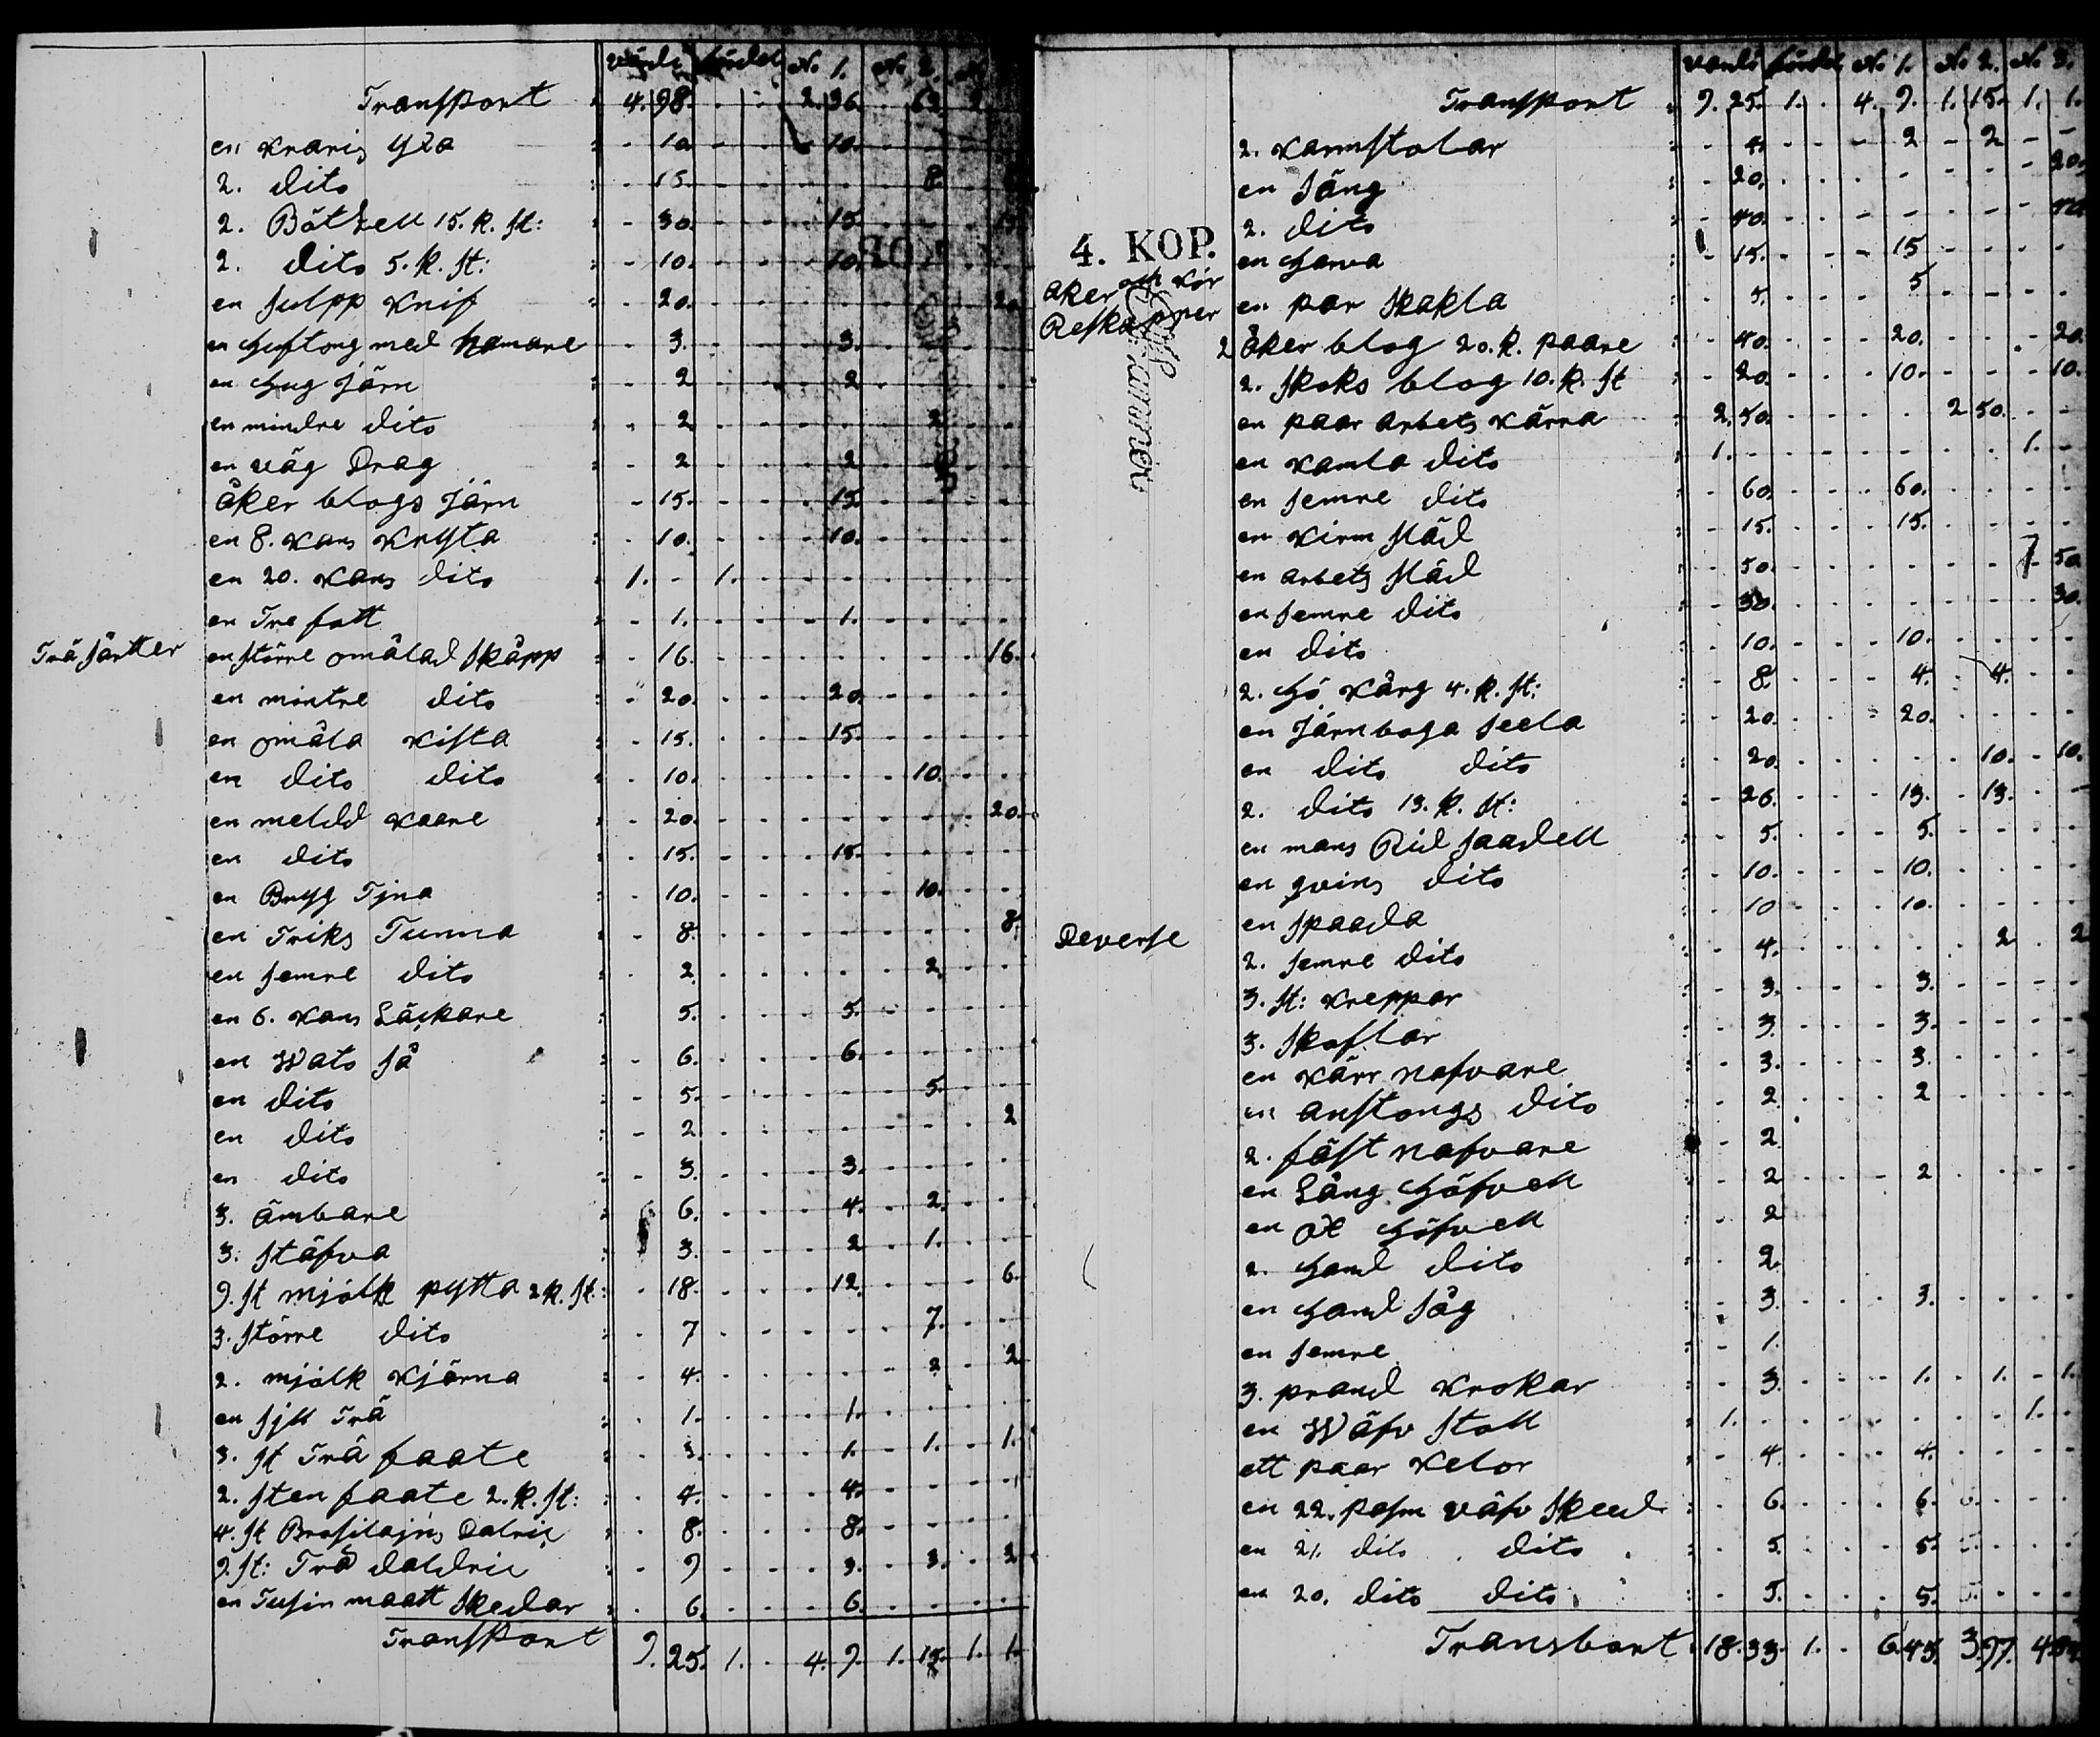 värde fördel No 1. No 2. No
Transport : 4. 98. - - 2. 36. - 63. 2
en knarig yxa : - 10 - - - 10. - - - -
2. dito : - 15. - - - - - 8. - 
2. Båtzell 15. k. st: : - 30. - - - 15. - - - 15.
2. dito 5. k. st: : - 10. - - - 10. - -
en sulpp Knif : - 20. - - - - - - - 20
en Huftong med hamare - 3. - - - 3. - - - -
en Hug Järn : - 2 - - - 2 - - - -
en mindre dito : - 2 - - - - - 2 - -
en väg Drag : - 2 - - - 2 - - - -
åker blogs Järn - 15. - - - 15. - - - -
en 8. Kans Krysta : - 10. - - - 10. - - - -
en 20. Kans dito : 1. - 1. - - - - - - -
en Tre fott : - 1. - - - 1. - - - -
Trä särtter en större omålad skåpp : - 16. - - - - - - - 16.
en mintre dito : - 20. - - - 20. - - - -
en omåla Kista : - 15. - - - 15. - - - -
en dito dito : - 10. - - - - - 10. - -
en meldd Kaare : - 20. - - - - - - - 20.
en dito : - 15. - - - 15. - - - -
en Brygg Tjna : - 10. - - - - - 10. - -
en Friks Tunna : - 8. - - - - - - - 8.
en semre dito : - 2. - - - - - 2. - -
en 6. Kans Läckare : 5. - - - 5. - - - -
en Wats så : - 6. - - - 6. - - - -
en dito : - 5. - - - - - 5. - -
en dito : - 2 - - - - - - - 2
en dito : - 3. - - - 3. - - - -
3. ämbare : 6. - - - 4. - 2. - -
3. stäfva : 3. - - - 2 - 1. - -
9. st mjölk pytta 2 k. st : - 18. - - - 12. - - - 6.
3. större dito : - 7 - - - - - 7. - -
2. mjölk Kjärna : - 4. - - - - - 2 - 2
en sjll Trä : - 1. - - - 1. - - - -
3. st Trä faate : - 3. - - - 1. - 1. - 1.
2. sten faate 2. k. st: : - 4. - - - 4. - - - -
4. st Brosilajns Dalric : - 8. - - - 8. - - - -
9. st: Trä daldric : - 9 - - - 3. - 3. - 3
en Tusin maatt skedar : - 6. - - - 6. - - - -
Transport 9. 25. 1. - 4. 9. 1. 15. 1. 1.
värde fördel No 1. No 2. No 3.
Transport : 9. 25. 1. - 4. 9. 1. 15. 1. 1.
2. Karmstolar : - 4. - - - 2 - 2 - -
en säng : - 20. - - - - - - - 20.
2. dito : - 40. - - - - - - - 40
4. KOP. en Harva - 15. - - - 15 - - - -
åker och Kör Reskapper en par skakla - 5. - - - 5 - - - -
2 åker blog 20. k. paare : - 40. - - - 20. - - - 20.
2. skoks blog 10. k. st : - 20. - - - 10. - - - 10.
en paar arbets Kärra : 2. 50. - - - - 2 50. - -
en Kamla dito : 1. - - - - - - - 1. -
en semre dito : - 60. - - - 60. - - - -
en Kirm släd : - 15. - - - 15. - - - -
en arbets släd : - 50. - - - - - - - 50
en semre dito : - 30. - - - - - - - 30.
en dito : - 10. - - - 10. - - - -
2. Hö Kärg 4. k. st: - 8. - - - 4. - 4. - -
en Järnboga seela - 20. - - - 20. - - - -
en dito dito : - 20. - - - - - 10. - 10.
2. dito 13. k. st: : - 26. - - - 13. - 13. - -
en mans Rid saadell : - 5. - - - 5. - - - -
en qvins dito : - 10. - - - 10. - - - -
Deverse en spaada : - 10 - - - 10. - - - -
2. semre dito : - 4. - - - - - 2 - 2
3. st: Kreppar : - 3. - - - 3. - - - -
3. skoflar : - 3. - - - 3. - - - -
en Kärr nafvare : - 3. - - - 3. - - - -
en anstongs dito : - 2 - - - 2 - - - -
2. fäst nafvare - 2
en Lång Höfvell : - 2 - - - 2 - - - -
en Höfvell : - 2
2. Hand dito : - 2.
en Hand såg : - 3. - - - 3. - - - -
en semre : - 1.
3. prand Krokar : - 3. - - - 1. - 1. - 1.
en Wäfv stoll : 1. - - - - - - - 1. -
ett paar Kelor : - 4. - - - 4. - - - -
en 22. pasm väfv skeed : - 6. - - - 6. - - - -
en 21. dito dito : - 5. - - - 5. - - - -
en 20. dito dito : - 5. - - - 5. - - - -
Transbort : 18. 33. 1. - 6. 45. 3. 97.